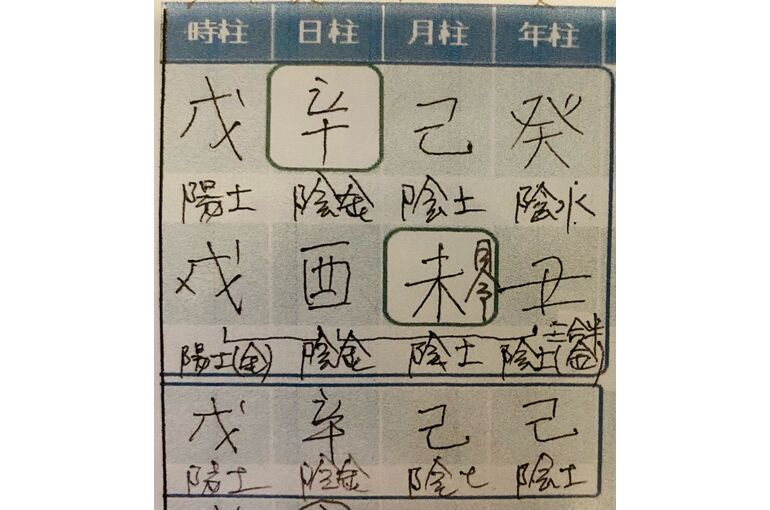 時柱 日柱 月柱 年柱
戊 辛 己 癸
陽土 陰金 陰土 陰水
戌 酉 未 月令 丑
陽土(金) 陰金 陰土 陰土
戊 辛 己 己
陽土 陰金 陰土 陰土